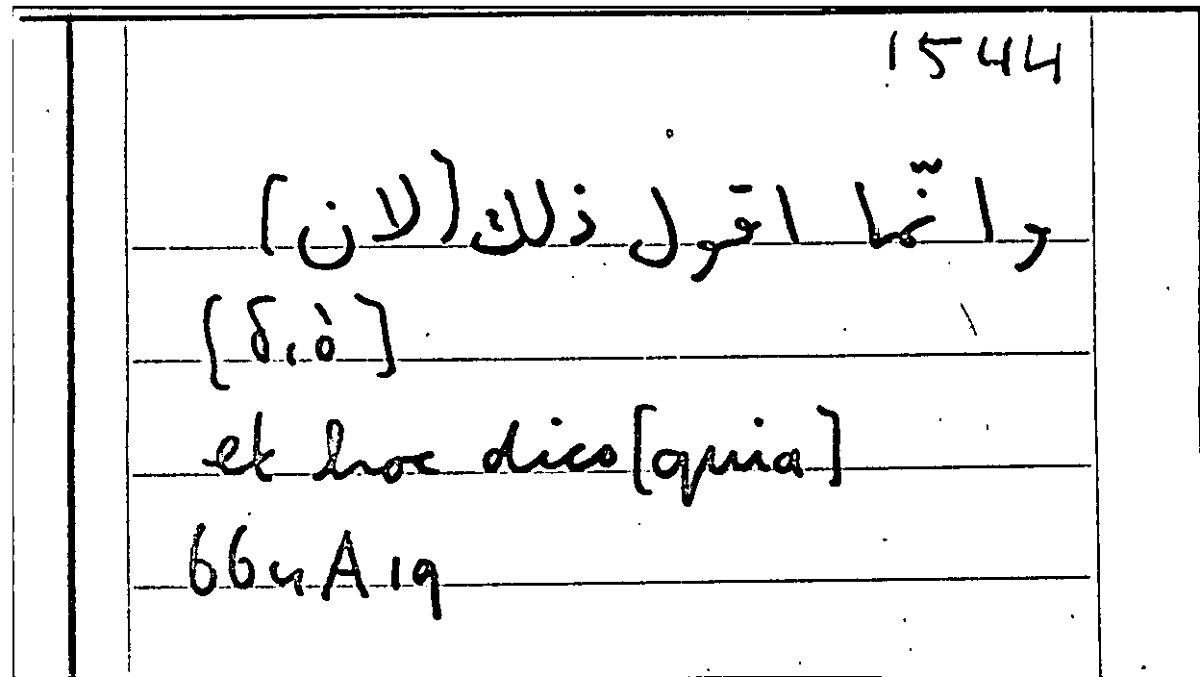 1544
وانّما اقول ذلك [لان]
[δι, ὁ]
et hoc dico [quia]
664 A 19